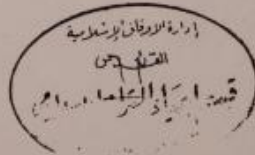 إدارة الأوقاف الإسلامية
القدس
قسم إحياء التراث الإسلامي